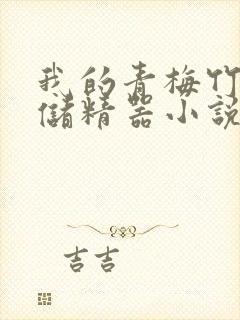 我的青梅竹
儲精器小說
吉吉